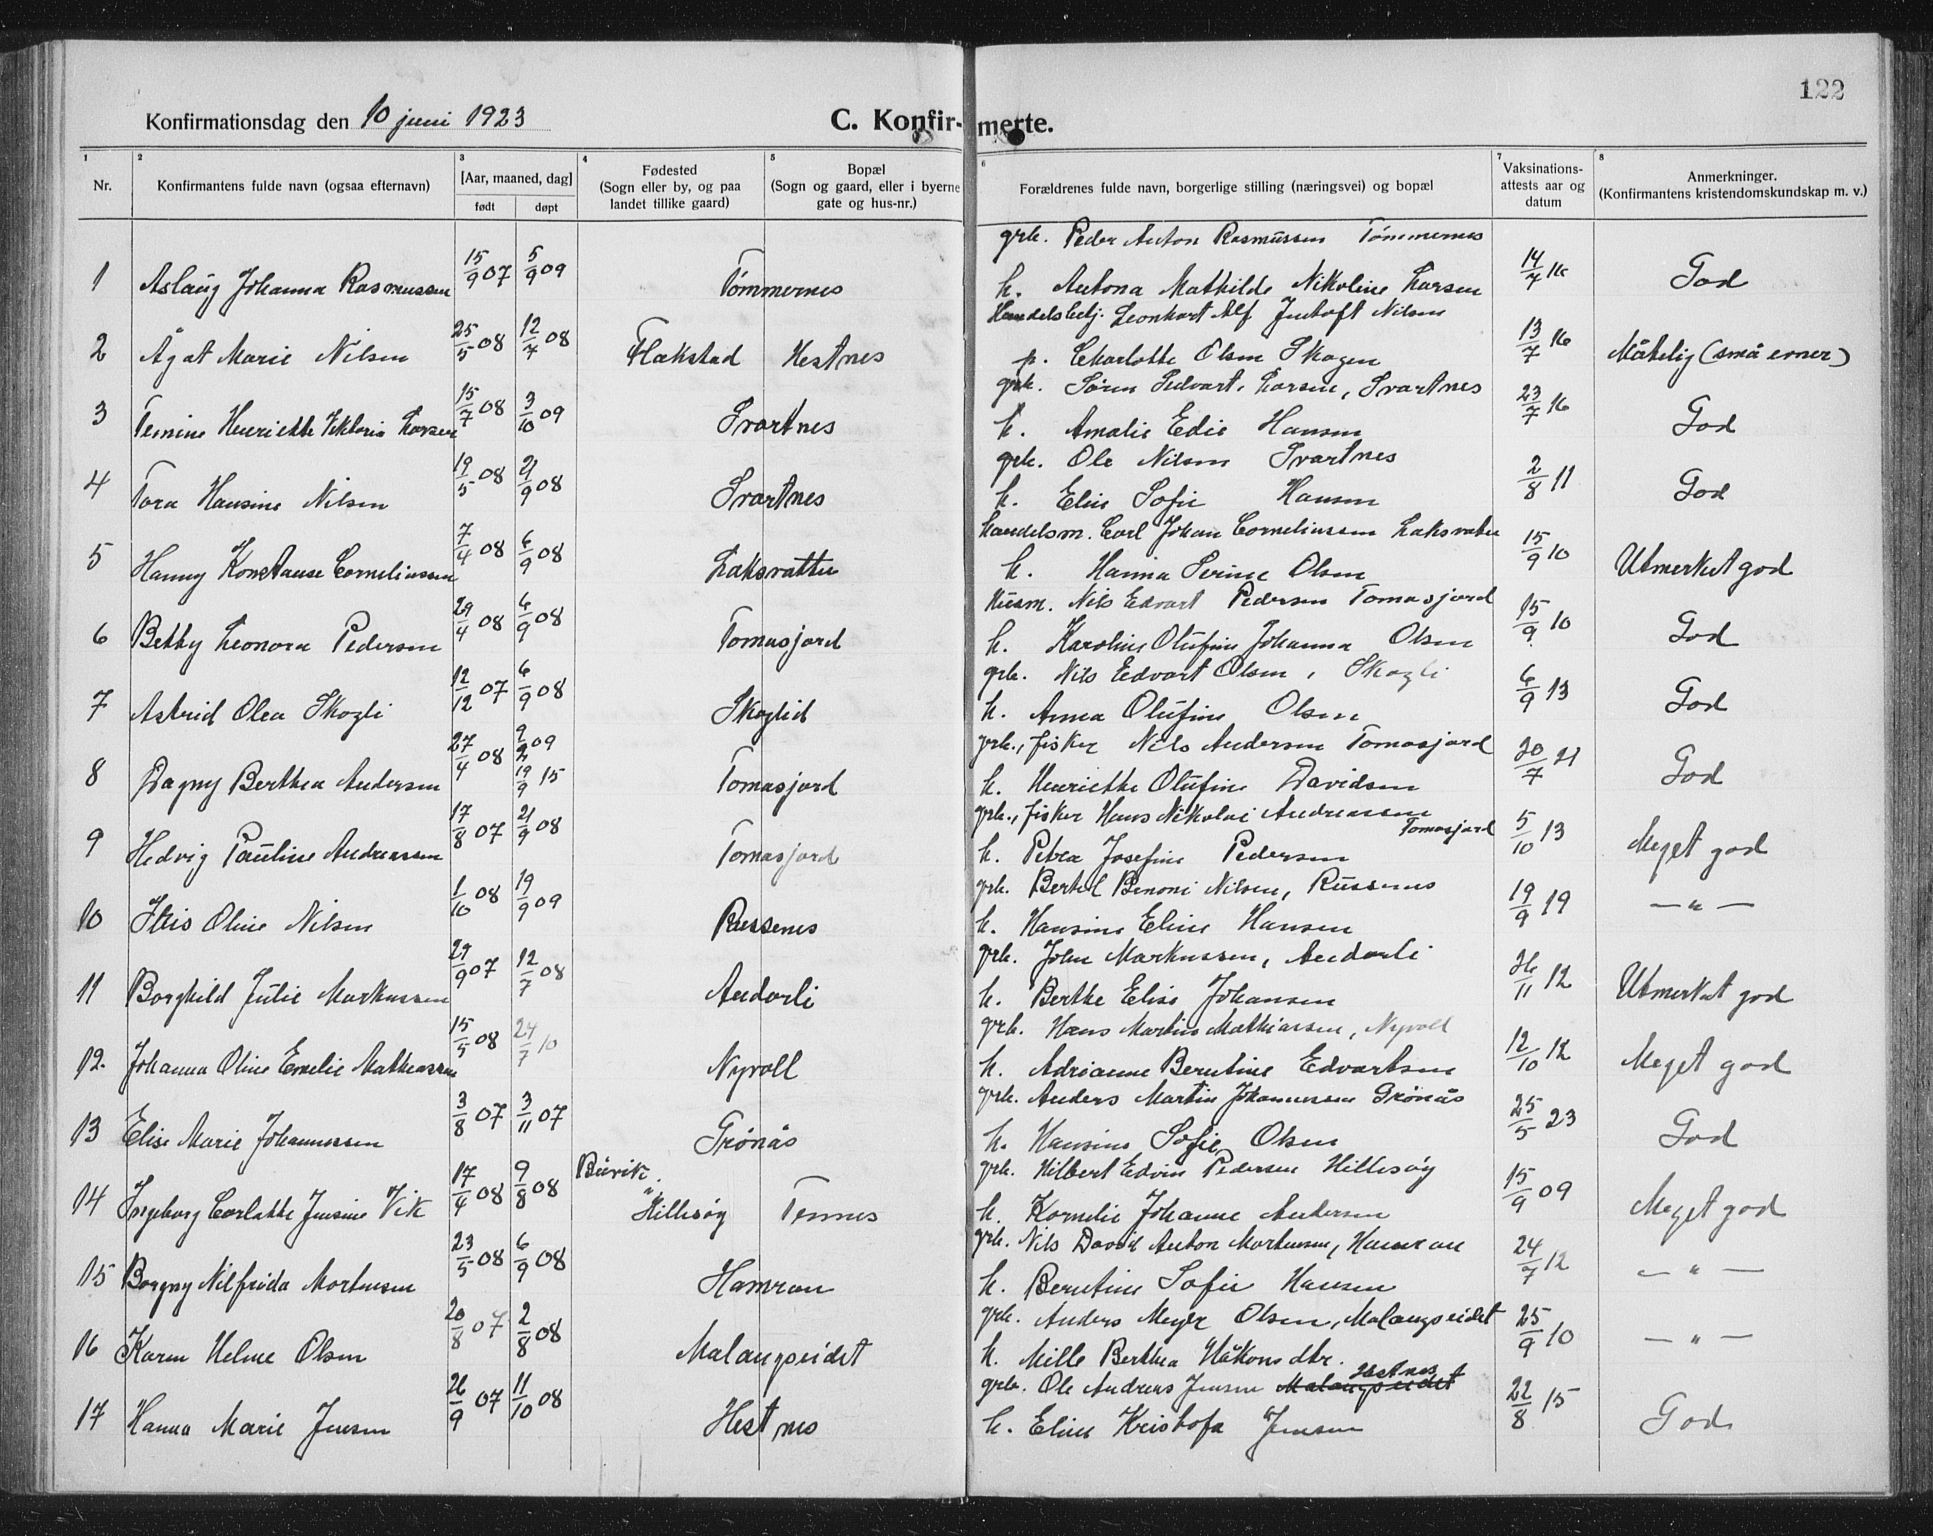 122
Konfirmationsdag den 10 juni 1923 C. Konfirmerte.
1 2 3 4 5 6 7 8
Nr. Konfirmantens fulde navn (ogsaa efternavn) [Aar, maaned, dag] født døpt Fødested (Sogn eller by, og paa landet tillike gaard) Bopæl (Sogn og gaard, eller i byerne gate og hus-nr.) Forældrenes fulde navn, borgerlige stilling (næringsvei) og bopæl Vaksinations-attests aar og datum Anmerkninger. (Konfirmantens kristendomskundskap m. v.)
grb. Peder Anton Rasmussen Tømmernes
1 Aslaug Johanna Rasmussen 15/9 07 5/9 09 Tømmernes h. Antona Mathilde Nikoline Larsen 14/7 16 God
Handelsbetj. Leonhart Alf Jentoft Nilsen
2 Ågot Marie Nilsen 25/5 08 12/7 08 Flakstad Hestnes p. Charlotte Olsen Skogen 13/7 16 Måtelig (små evner)
grb. Søren Sedvart. Larsen, Svartnes
3 Henriette Viktoria Larsen 15/7 08 3/10 09 Svartnes h. Amalie Edie Hansen 23/7 16 God
grb. Ole Nilsen Svartnes
4 Tora Hansine Nilsen 19/5 08 21/9 08 Svartnes h. Elise Sofie Hansen 2/8 11 God
Handelsm. Carl Johan Corneliussen Laksvatn
5 Hanny Konstanse Corneliussen 7/4 08 6/9 08 Laksvatn h. Hanna Serine Olsen 15/9 10 Utmerket god
Husm. Nils Edvart Pedersen Tomasjord
6 Betty Leonora Pedersen 29/4 08 6/9 08 Tomasjord h. Karoline Olufine Johanna Olsen 15/9 10 God
grb. Nils Edvart Olsen, Skogli
7 Astrid Olea Skogli 12/12 07 6/9 08 Skoglid h. Anna Olufine Olsen 6/9 13 God
grb., fisker Nils Andersen Tomasjord
8 Dagny Berthea Andersen 27/4 08 2/2 09 19/9 15 Tomasjord h. Henriette Olufine Davidsen 20/7 21 God
grb., fisker Hans Nikolai Andreassen Tomasjord
9 Hedvig Pauline Andreassen 17/8 07 21/9 08 Tomasjord h. Petra Josefine Pedersen 5/10 13 Meget god
grb. Bertel Benoni Nilsen, Russenes
10 Oline Nilsen 1/10 08 19/9 09 Russenes h. Hansine Eline Hansen 19/9 19 — " —
grb. John Markussen, Andorli
11 Borghild Julie Markussen 29/9 07 12/7 08 Andorli h. Berthe Elise Johansen 26/11 12 Utmerket god
grb. Hans Martin Mathiassen, Nyvoll
12. Johanna Oline Emelie Mathiassen 15/5 08 24/7 10 Nyvoll h. Adrianne Berntine Edvartsen 12/10 12 Meget god
grb. Anders Martin Johannessen Grønås
13 Elise Marie Johannessen 3/8 07 3/11 07 Grønås h. Hansine Sofie Olsen 25/5 23 God
Buvik. grb. Hilbert Edvin Pedersen Hillesøy
14 Ingeborg Carlotte Jensine Vik 17/4 08 9/8 08 " Hillesøy Tennes h. Kornelie Johanne Andersen 15/9 09 Meget god
grb. Nils David Anton Mortensen, Hamran
15 Borgny Nilfrida Mortensen 23/5 08 6/9 08 Hamran h. Berntine Sofie Hansen 24/7 12 — " —
grb. Anders Meyer Olsen, Malangseidet
16 Karen Helene Olsen 20/8 07 2/8 08 Malangseidet h. Mille Berthea Håkonsdtr. 25/9 10 — " —
grb. Ole Andreas Jensen Malangseidet Hestnes
17 Hanna Marie Jensen 26/9 07 11/10 08 Hestnes h. Eline Kristofa Jensen 22/8 15 God